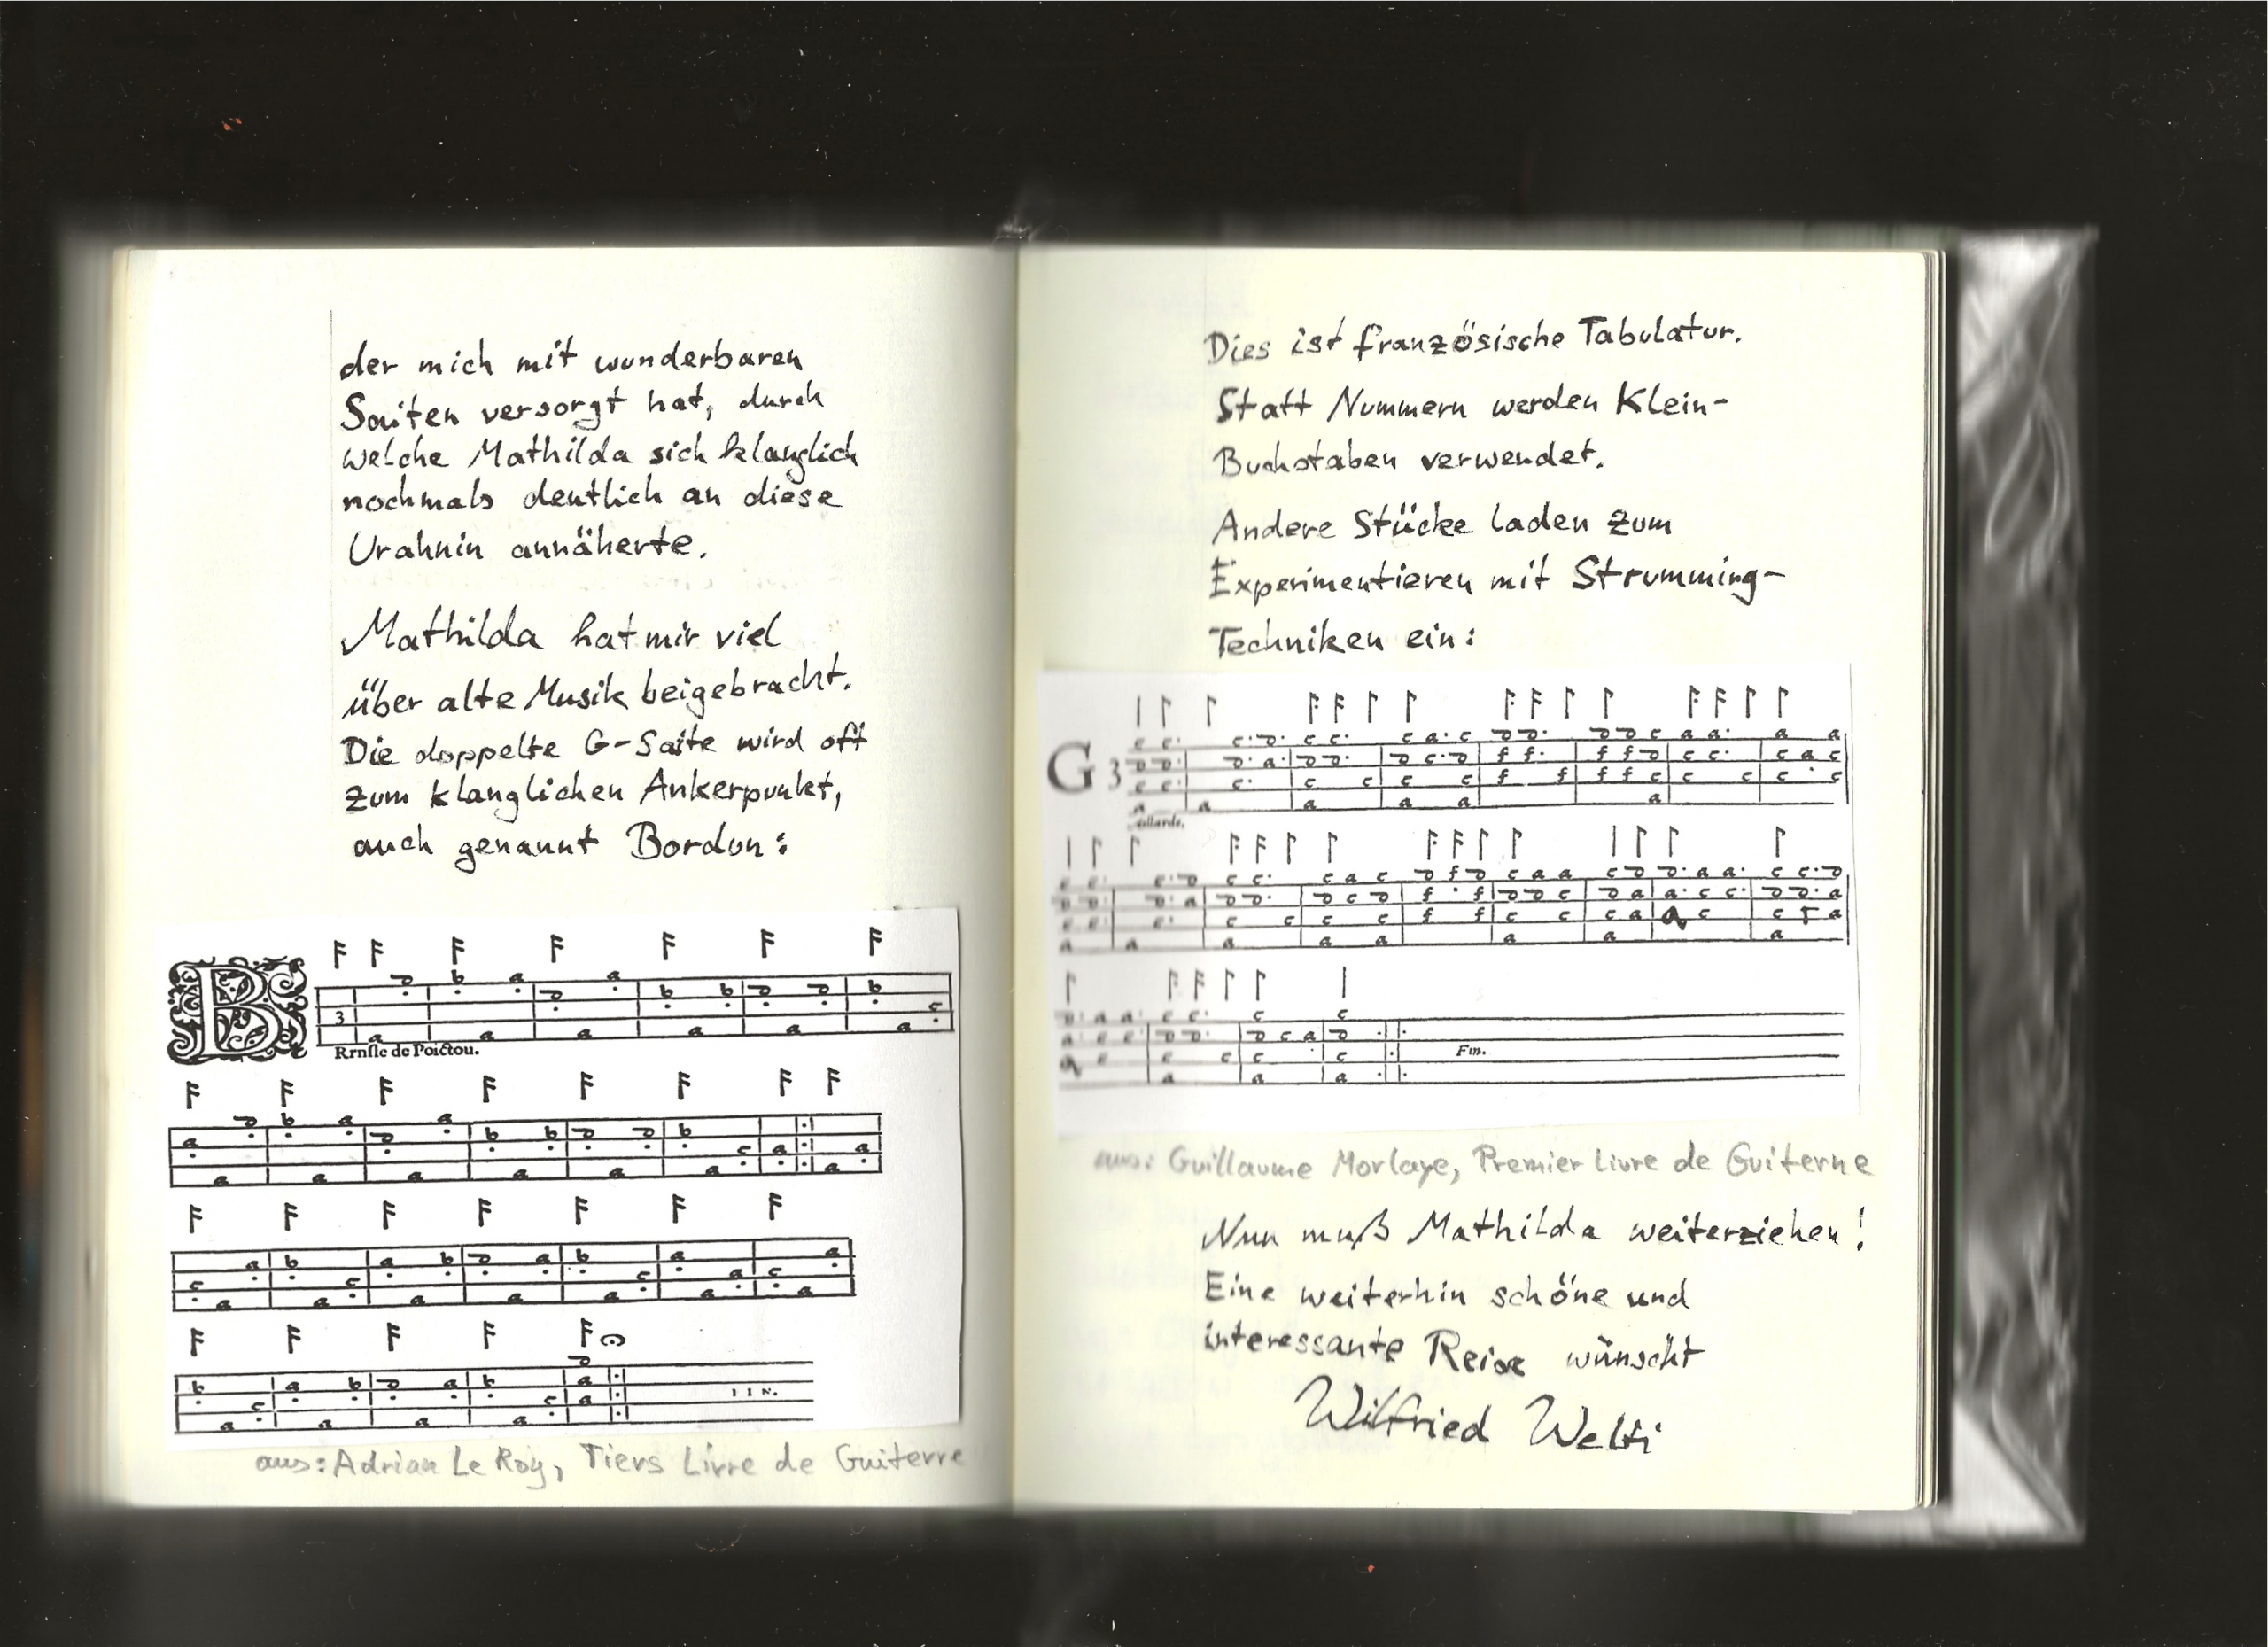 der mich mit wunderbaren
Saiten versorgt hat, durch
welche Mathilda sich klanglich
nochmals deutlich an diese
Urahnin annäherte.
Mathilda hat mir viel
über alte Musik beigebracht.
Die doppelte G-Saite wird oft
zum klanglichen Ankerpunkt,
auch genannt Bordun:
B
3
Rrnsle de Poictou.
aus: Adrian Le Roy, Tiers Livre de Guiterre
Dies ist französische Tabulatur.
Statt Nummern werden Klein-
Buchstaben verwendet.
Andere Stücke laden zum
Experimentieren mit Strumming-
Techniken ein:
G 3
aillarde.
Fin.
aus: Guillaume Morlaye, Premier Livre de Guiterne
Nun muß Mathilda weiterziehen!
Eine weiterhin schöne und
interessante Reise wünscht
Wilfried Welti